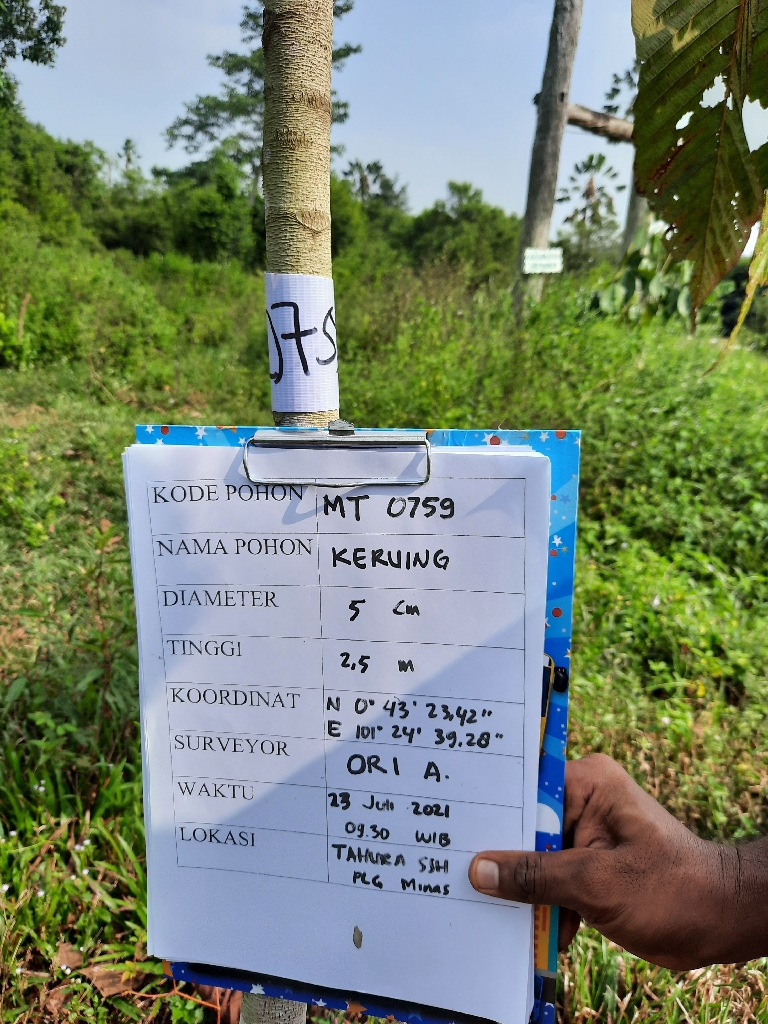 175
KODE POHON MT 0759
NAMA POHON KERUING
DIAMETER 5 cm
TINGGI 2,5 m
KOORDINAT N 0° 43' 23,42"
E 101° 24' 39,28"
SURVEYOR ORI A.
WAKTU 23 Juli 2021
09.30 WIB
LOKASI TAHURA SSH
PLG Minas